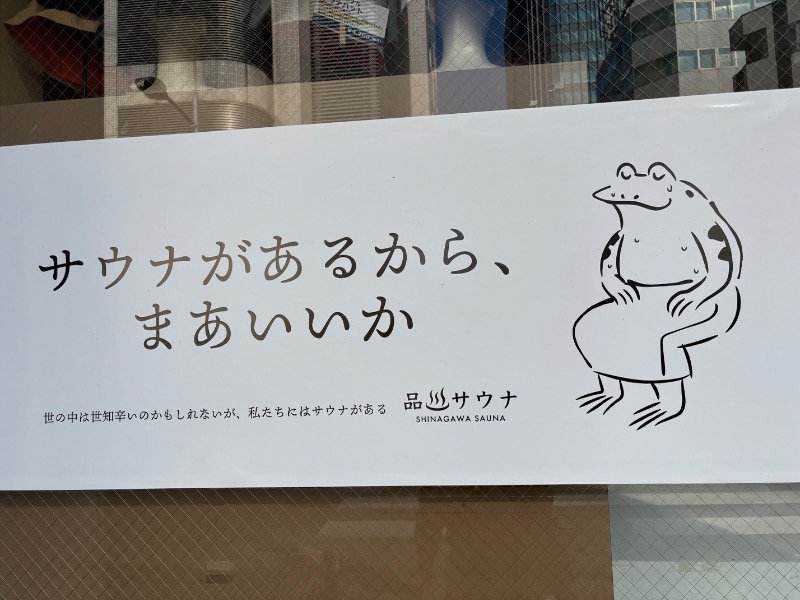 サウナがあるから、
まあいいか
世の中は世知辛いのかもしれないが、私たちにはサウナがある
品♨サウナ
SHINAGAWA SAUNA